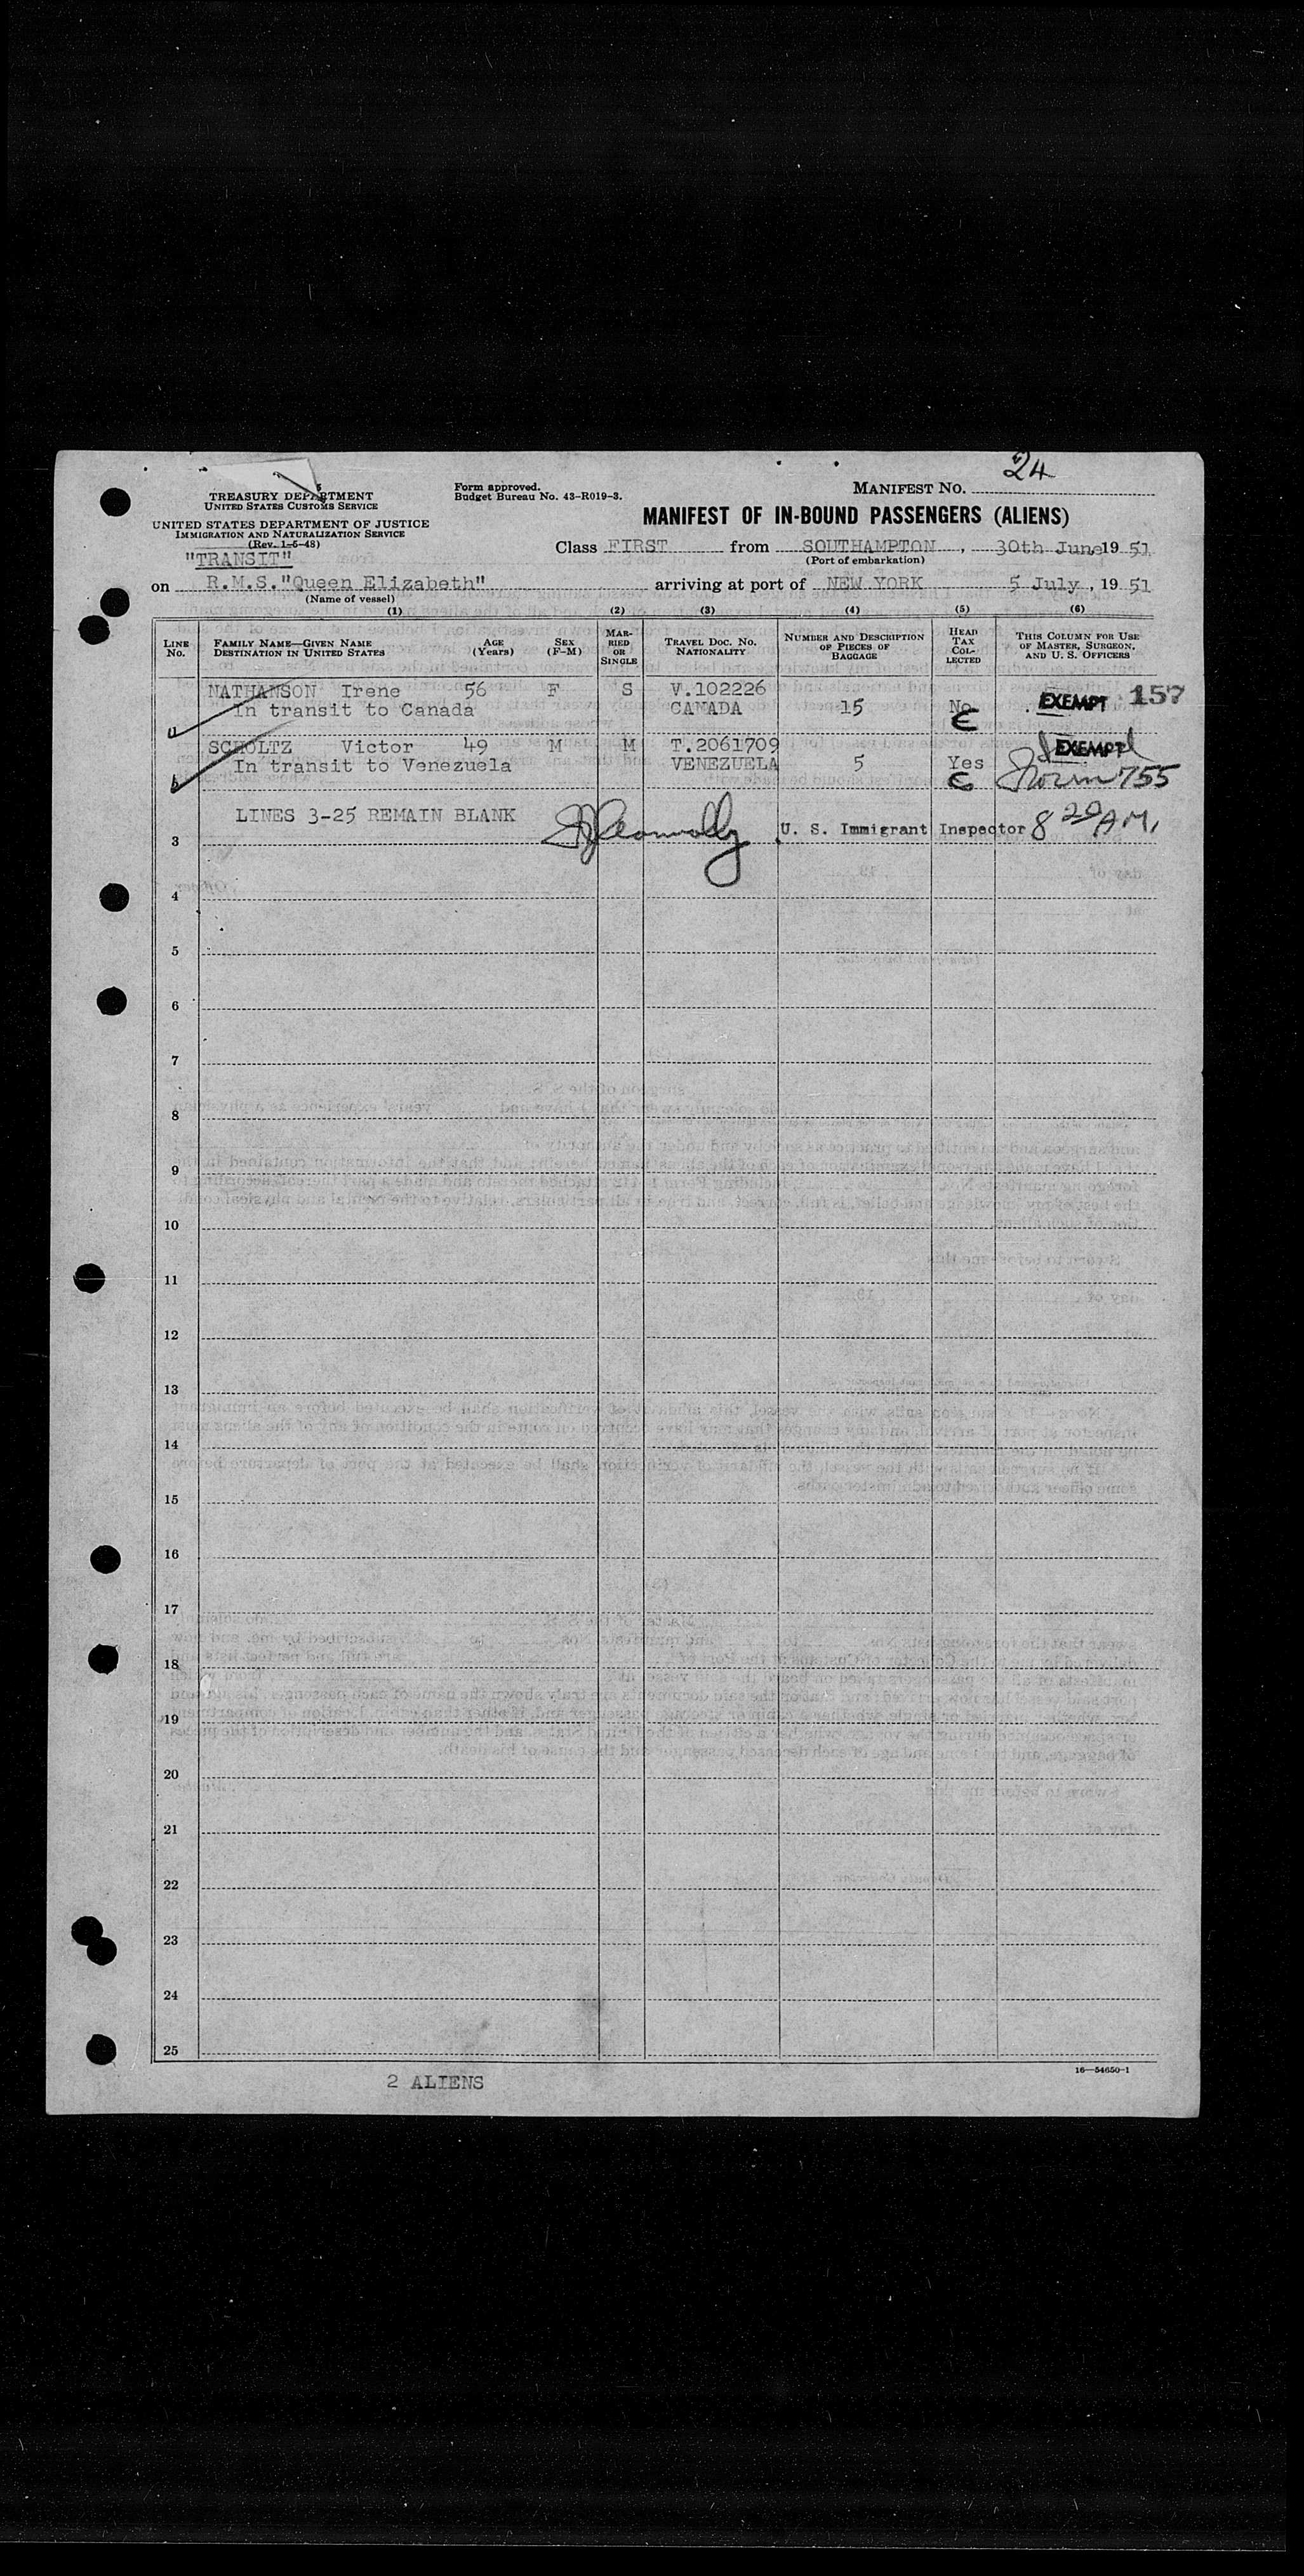 24
TREASURY DEPARTMENT
UNITED STATES CUSTOMS SERVICE
Form approved.
Budget Bureau No. 43-R019-3.
MANIFEST NO.
UNITED STATES DEPARTMENT OF JUSTICE
IMMIGRATION AND NATURALIZATION SERVICE
(Rev. 1-5-48)
MANIFEST OF IN-BOUND PASSENGERS (ALIENS)
"TRANSIT"
Class FIRST from SOUTHAMPTON, 30th June 19 51
(Port of embarkation)
on R.M.S."Queen Elizabeth" arriving at port of NEW YORK 5 July, 19 51
(Name of vessel)
(1) (2) (3) (4) (5) (6)
LINE No. FAMILY NAME—GIVEN NAME DESTINATION IN UNITED STATES AGE (Years) SEX (F-M) MARRIED OR SINGLE TRAVEL DOC. NO. NATIONALITY NUMBER AND DESCRIPTION OF PIECES OF BAGGAGE HEAD TAX COLLECTED THIS COLUMN FOR USE OF MASTER, SURGEON, AND U. S. OFFICERS
NATHANSON Irene 56 F S V.102226 EXEMPT 157
In transit to Canada CANADA 15 No
SCHOLTZ Victor 49 M M T.2061709 EXEMPT
In transit to Venezuela VENEZUELA 5 Yes 755
LINES 3-25 REMAIN BLANK
U. S. Immigrant Inspector 8 20 A.M.
3
4
5
6
7
8
9
10
11
12
13
14
15
16
17
18
19
20
21
22
23
24
25
16—54650-1
2 ALIENS